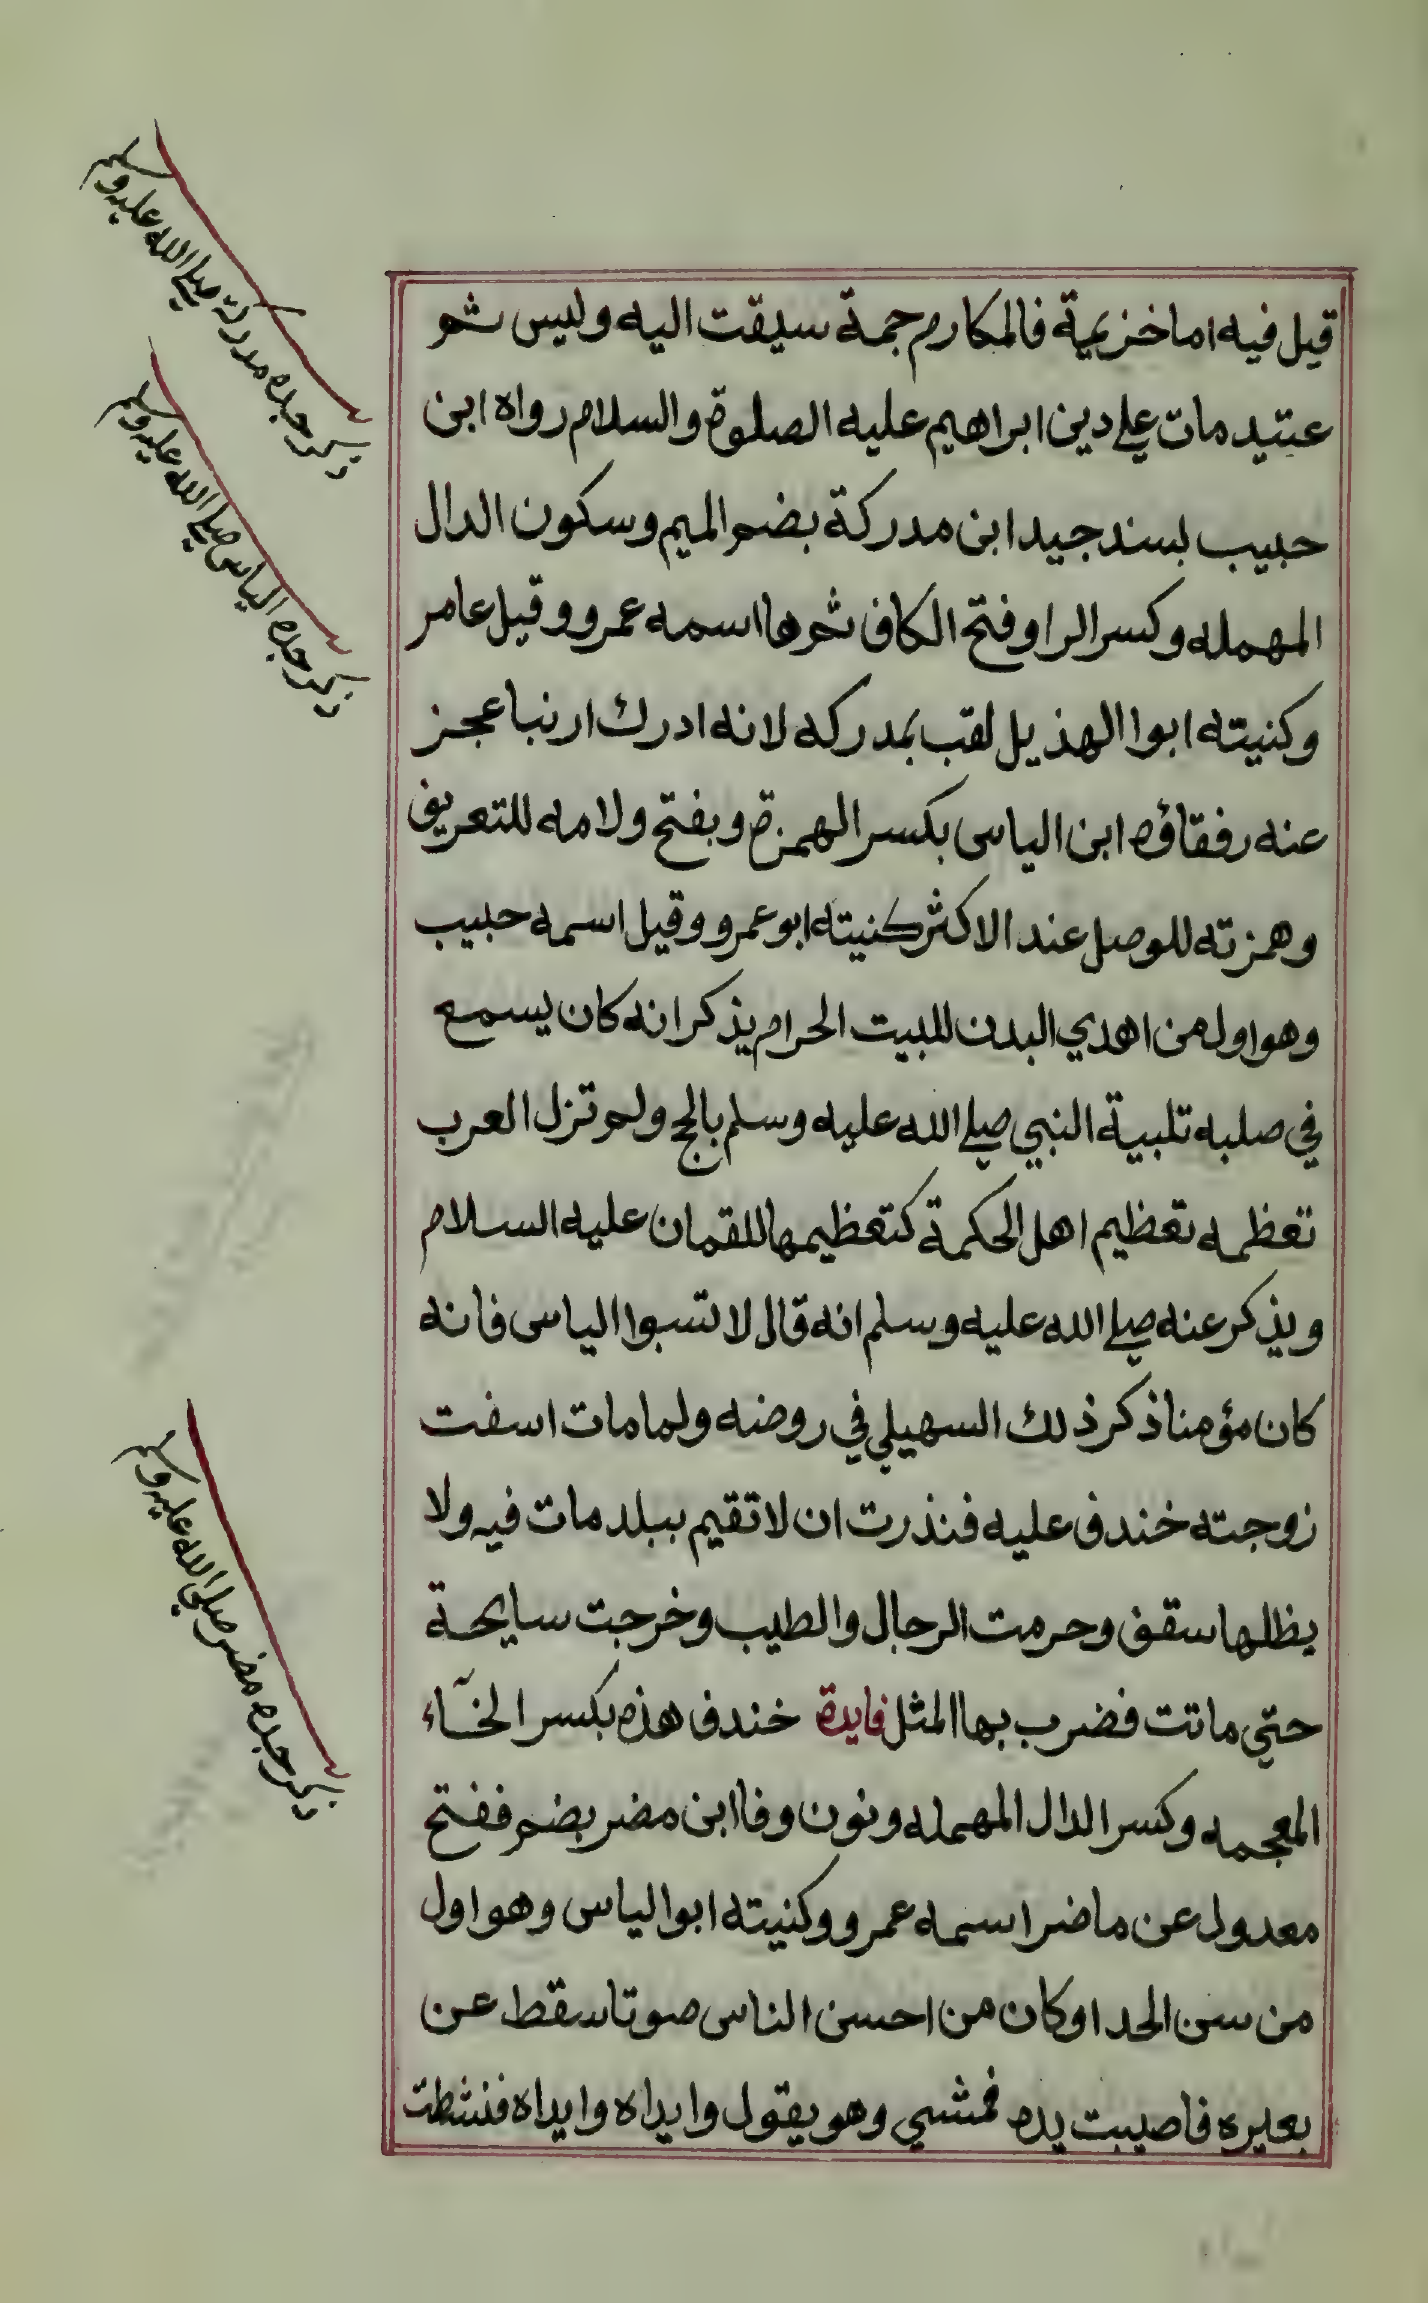 قيل فيه اما خزيمة فالمكارم جمة سيقت اليه وليس ثم
عتيد مات علي دين ابراهيم عليه الصلوة والسلام رواه ابن
حبيب بسند جيد ابن مدركة بضم الميم وسكون الدال
المهمله وكسر الرا وفتح الكاف ثم ها اسمه عمرو وقيل عامر
وكنيته ابوا الهذيل لقب بمدركه لانه ادرك ارنبا عجز
عنه رفقاؤه ابن الياس بكسر الهمزة وبفتح ولامه للتعريف
وهمزته للوصل عند الاكثر كنيته ابو عمرو وقيل اسمه حبيب
وهو اول من اهدي البدن للبيت الحرام يذكر انه كان يسمع
في صلبه تلبية النبي صلي الله عليه وسلم بالحج ولم تزل العرب
تعظمه تعظيم اهل الحكمة كتعظيمها للقمان عليه السلام
ويذكر عنه صلي الله عليه وسلم انه قال لا تسبوا الياس فانه
كان مؤمنا ذكر ذلك السهيلي في روضه ولما مات اسفت
زوجته خندف عليه فنذرت ان لا تقيم ببلد مات فيه ولا
يظلها سقف وحرمت الرجال والطيب وخرجت سايحة
حتي ماتت فضرب بها المثل فايدة خندف هذه بكسر الخآء
المعجمه وكسر الدال المهمله ونون وفا ابن مضر بضم ففتح
معدول عن ماضر اسمه عمرو وكنيته ابوا الياس وهو اول
من سن الحدا وكان من احسن الناس صوتا سقط عن
بعيره فاصيبت يده فمشي وهو يقول وايداه وايداه فنشطت
ذكر جده مدركة صلي الله عليه وسلم
ذكر جده الياس صلي الله عليه وسلم
ذكر جده مضر صلي الله عليه وسلم